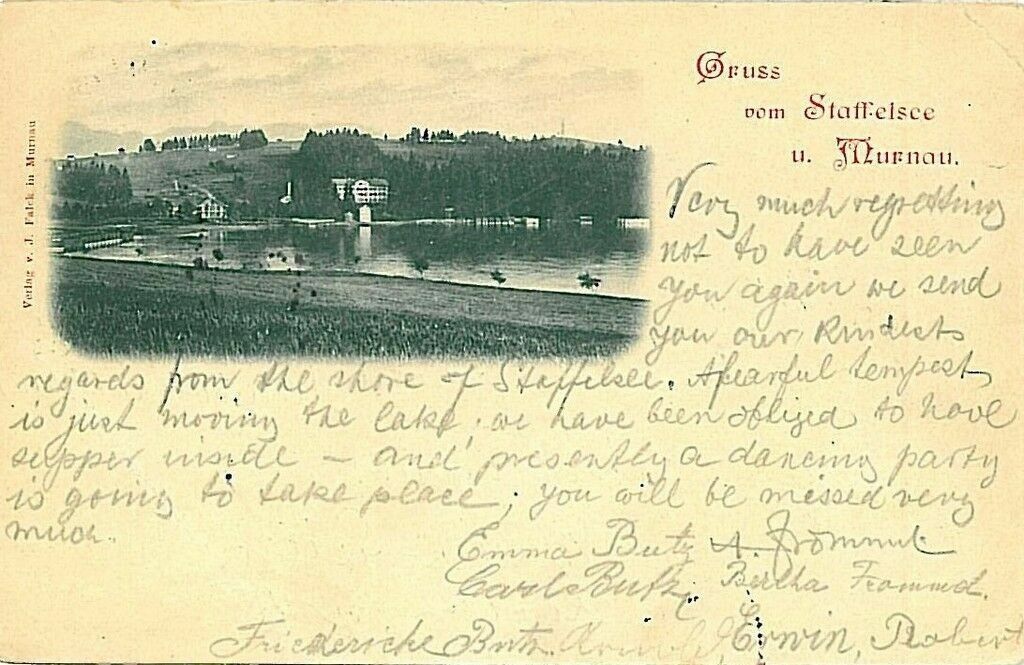 Gruss
vom Staffelsee
u. Murnau.
Verlag v. J. Falck in Murnau
Very much regretting
not to have seen
you again we send
you our kindest
regards from the shore of Staffelsee. A fearful tempest
is just moving the lake; we have been obliged to have
supper inside – and presently a dancing party
is going to take place; you will be missed very
much.
Emma Butz A. Frommel
Carl Butz, Bertha Frommel.
Friedericke Butz Erwin, Robert